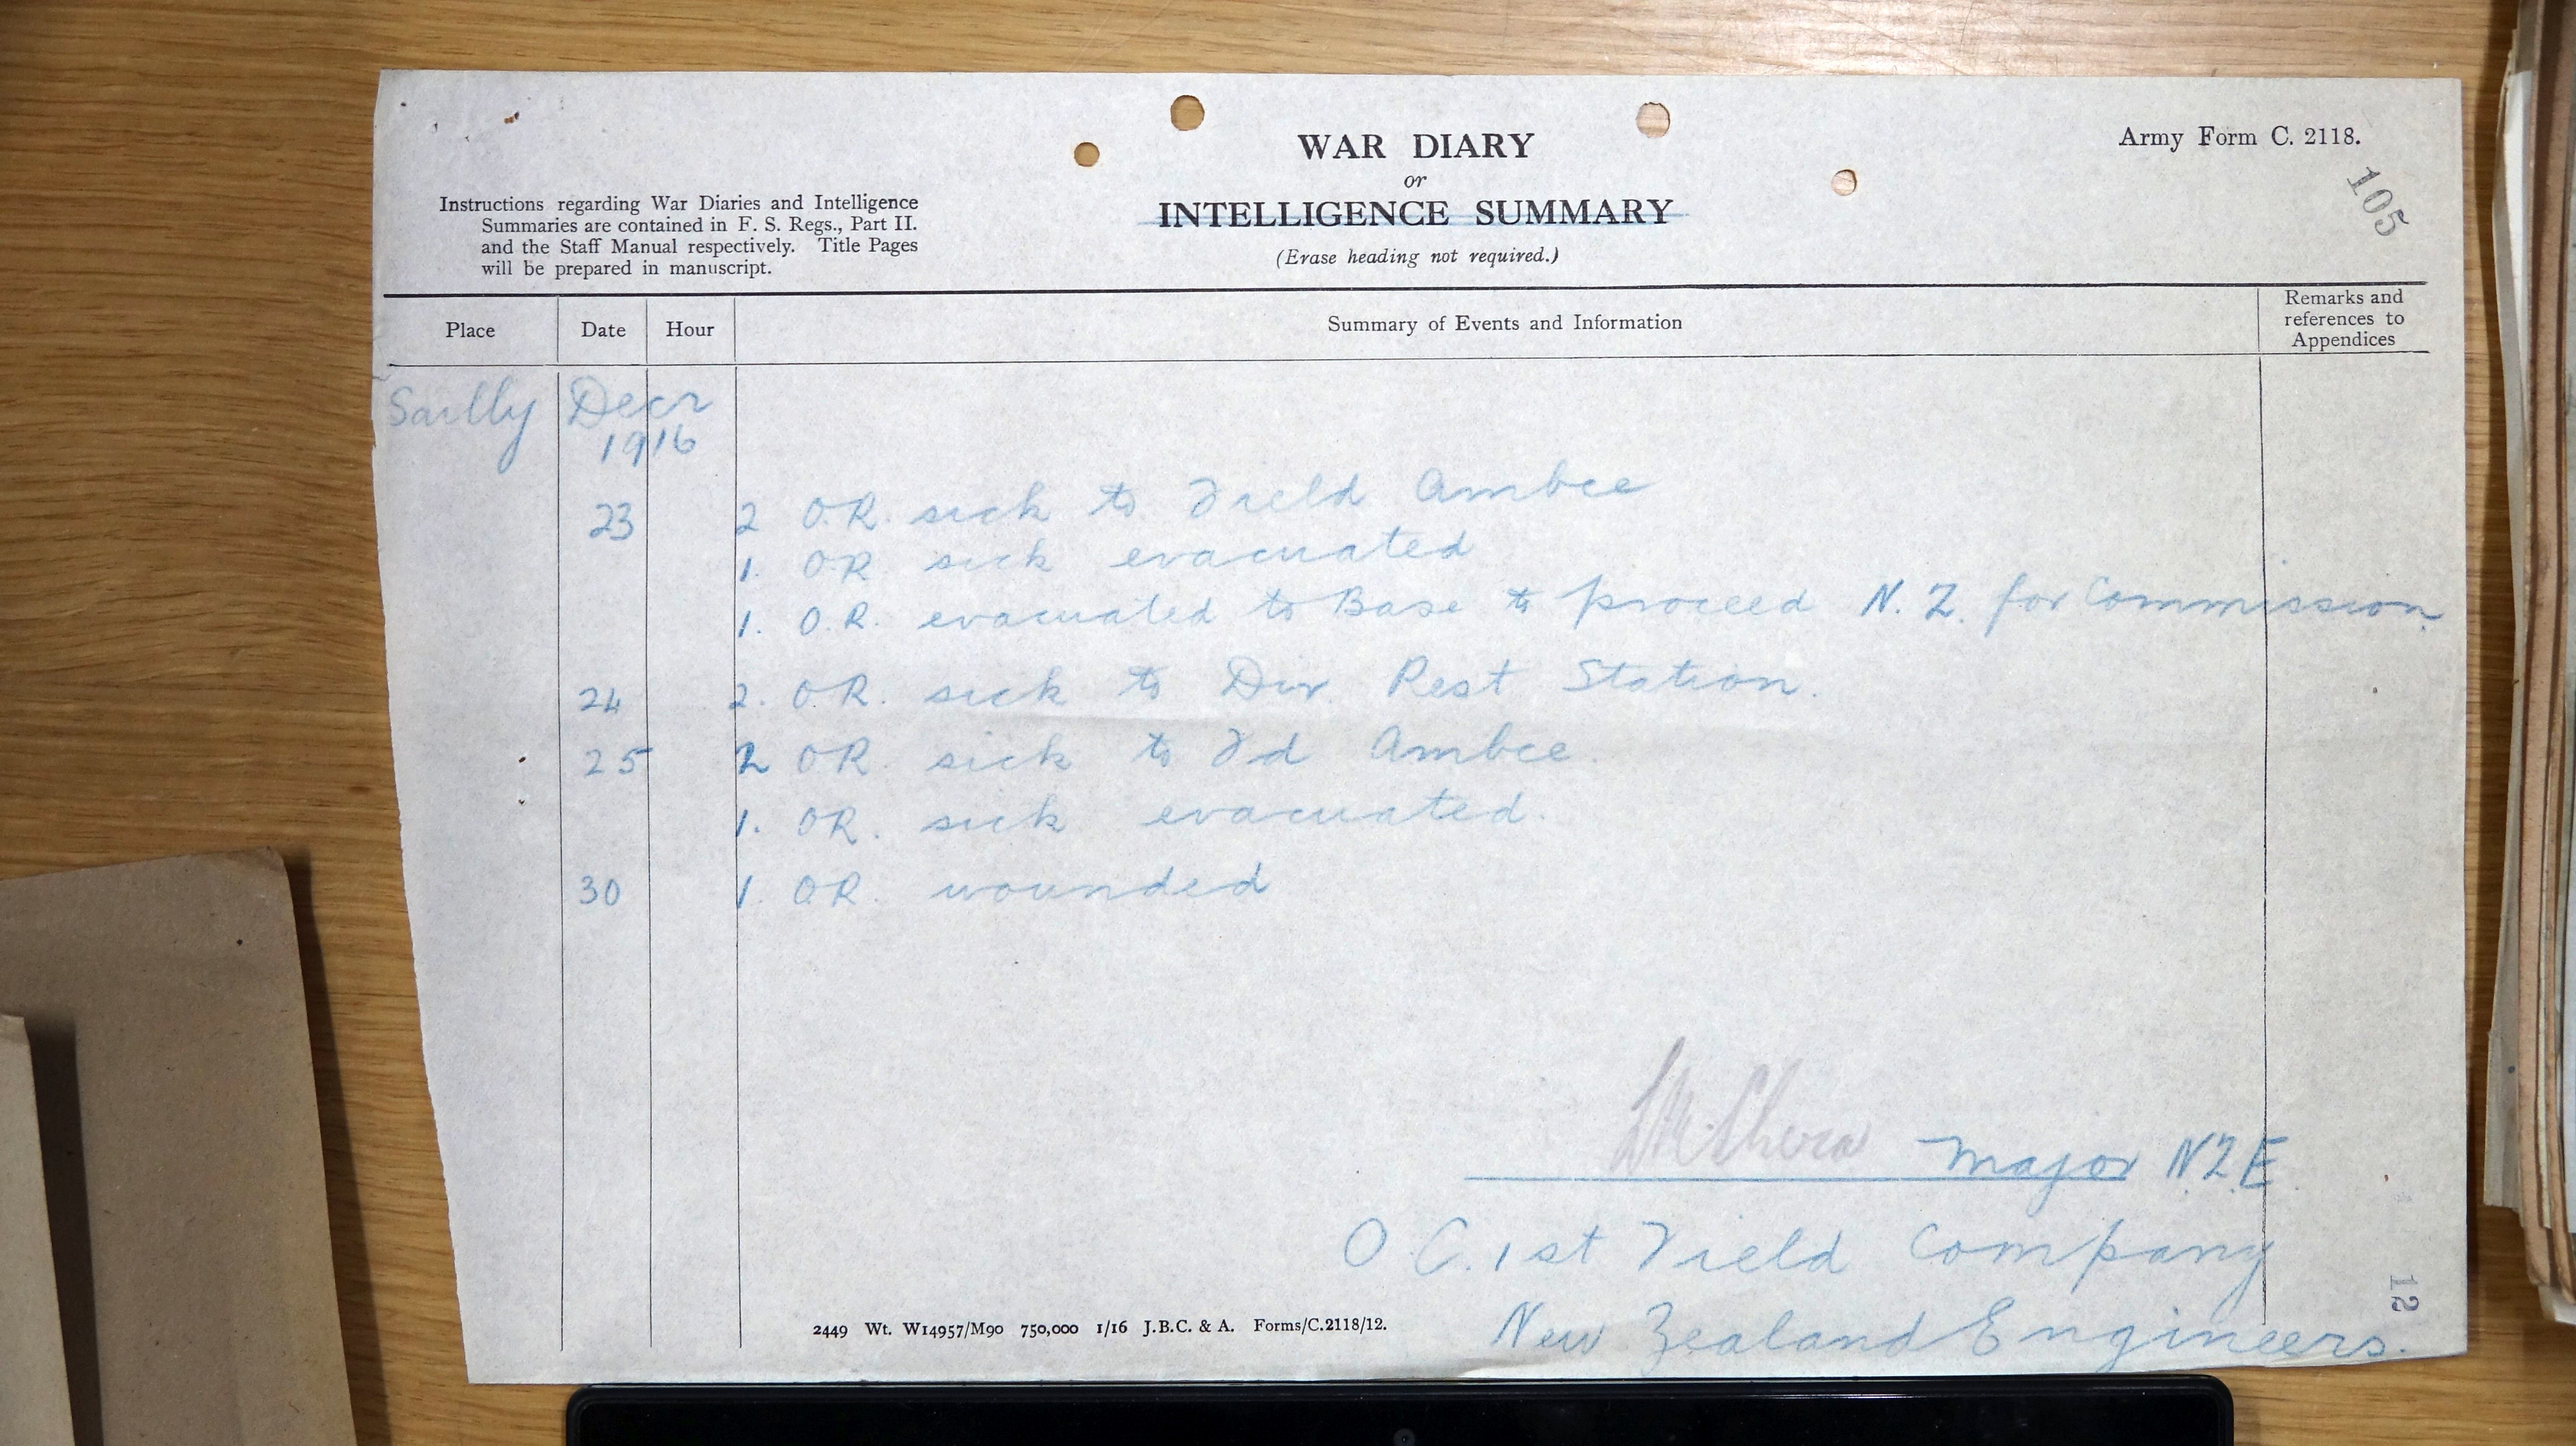 Army Form C. 2118.
105
WAR DIARY
or
INTELLIGENCE SUMMARY
(Erase heading not required.)
Instructions regarding War Diaries and Intelligence
Summaries are contained in F. S. Regs., Part II.
and the Staff Manual respectively. Title Pages
will be prepared in manuscript.
Place Date Hour Summary of Events and Information Remarks and
references to
Appendices
Sailly Decr
1916
23 2 O.R. sick to Field Ambce
1. OR sick evacuated
1. O.R. evacuated to Base to proceed N.Z. for Commission.
24 2. O.R. sick to Div Rest Station.
25 2 OR sick to Fd Ambce.
1. OR. sick evacuated.
30 1. O.R. wounded
Major N.Z.E.
O.C. 1st Field Company
New Zealand Engineers.
12
2449 Wt. W14957/M90 750,000 1/16 J.B.C. & A. Forms/C.2118/12.